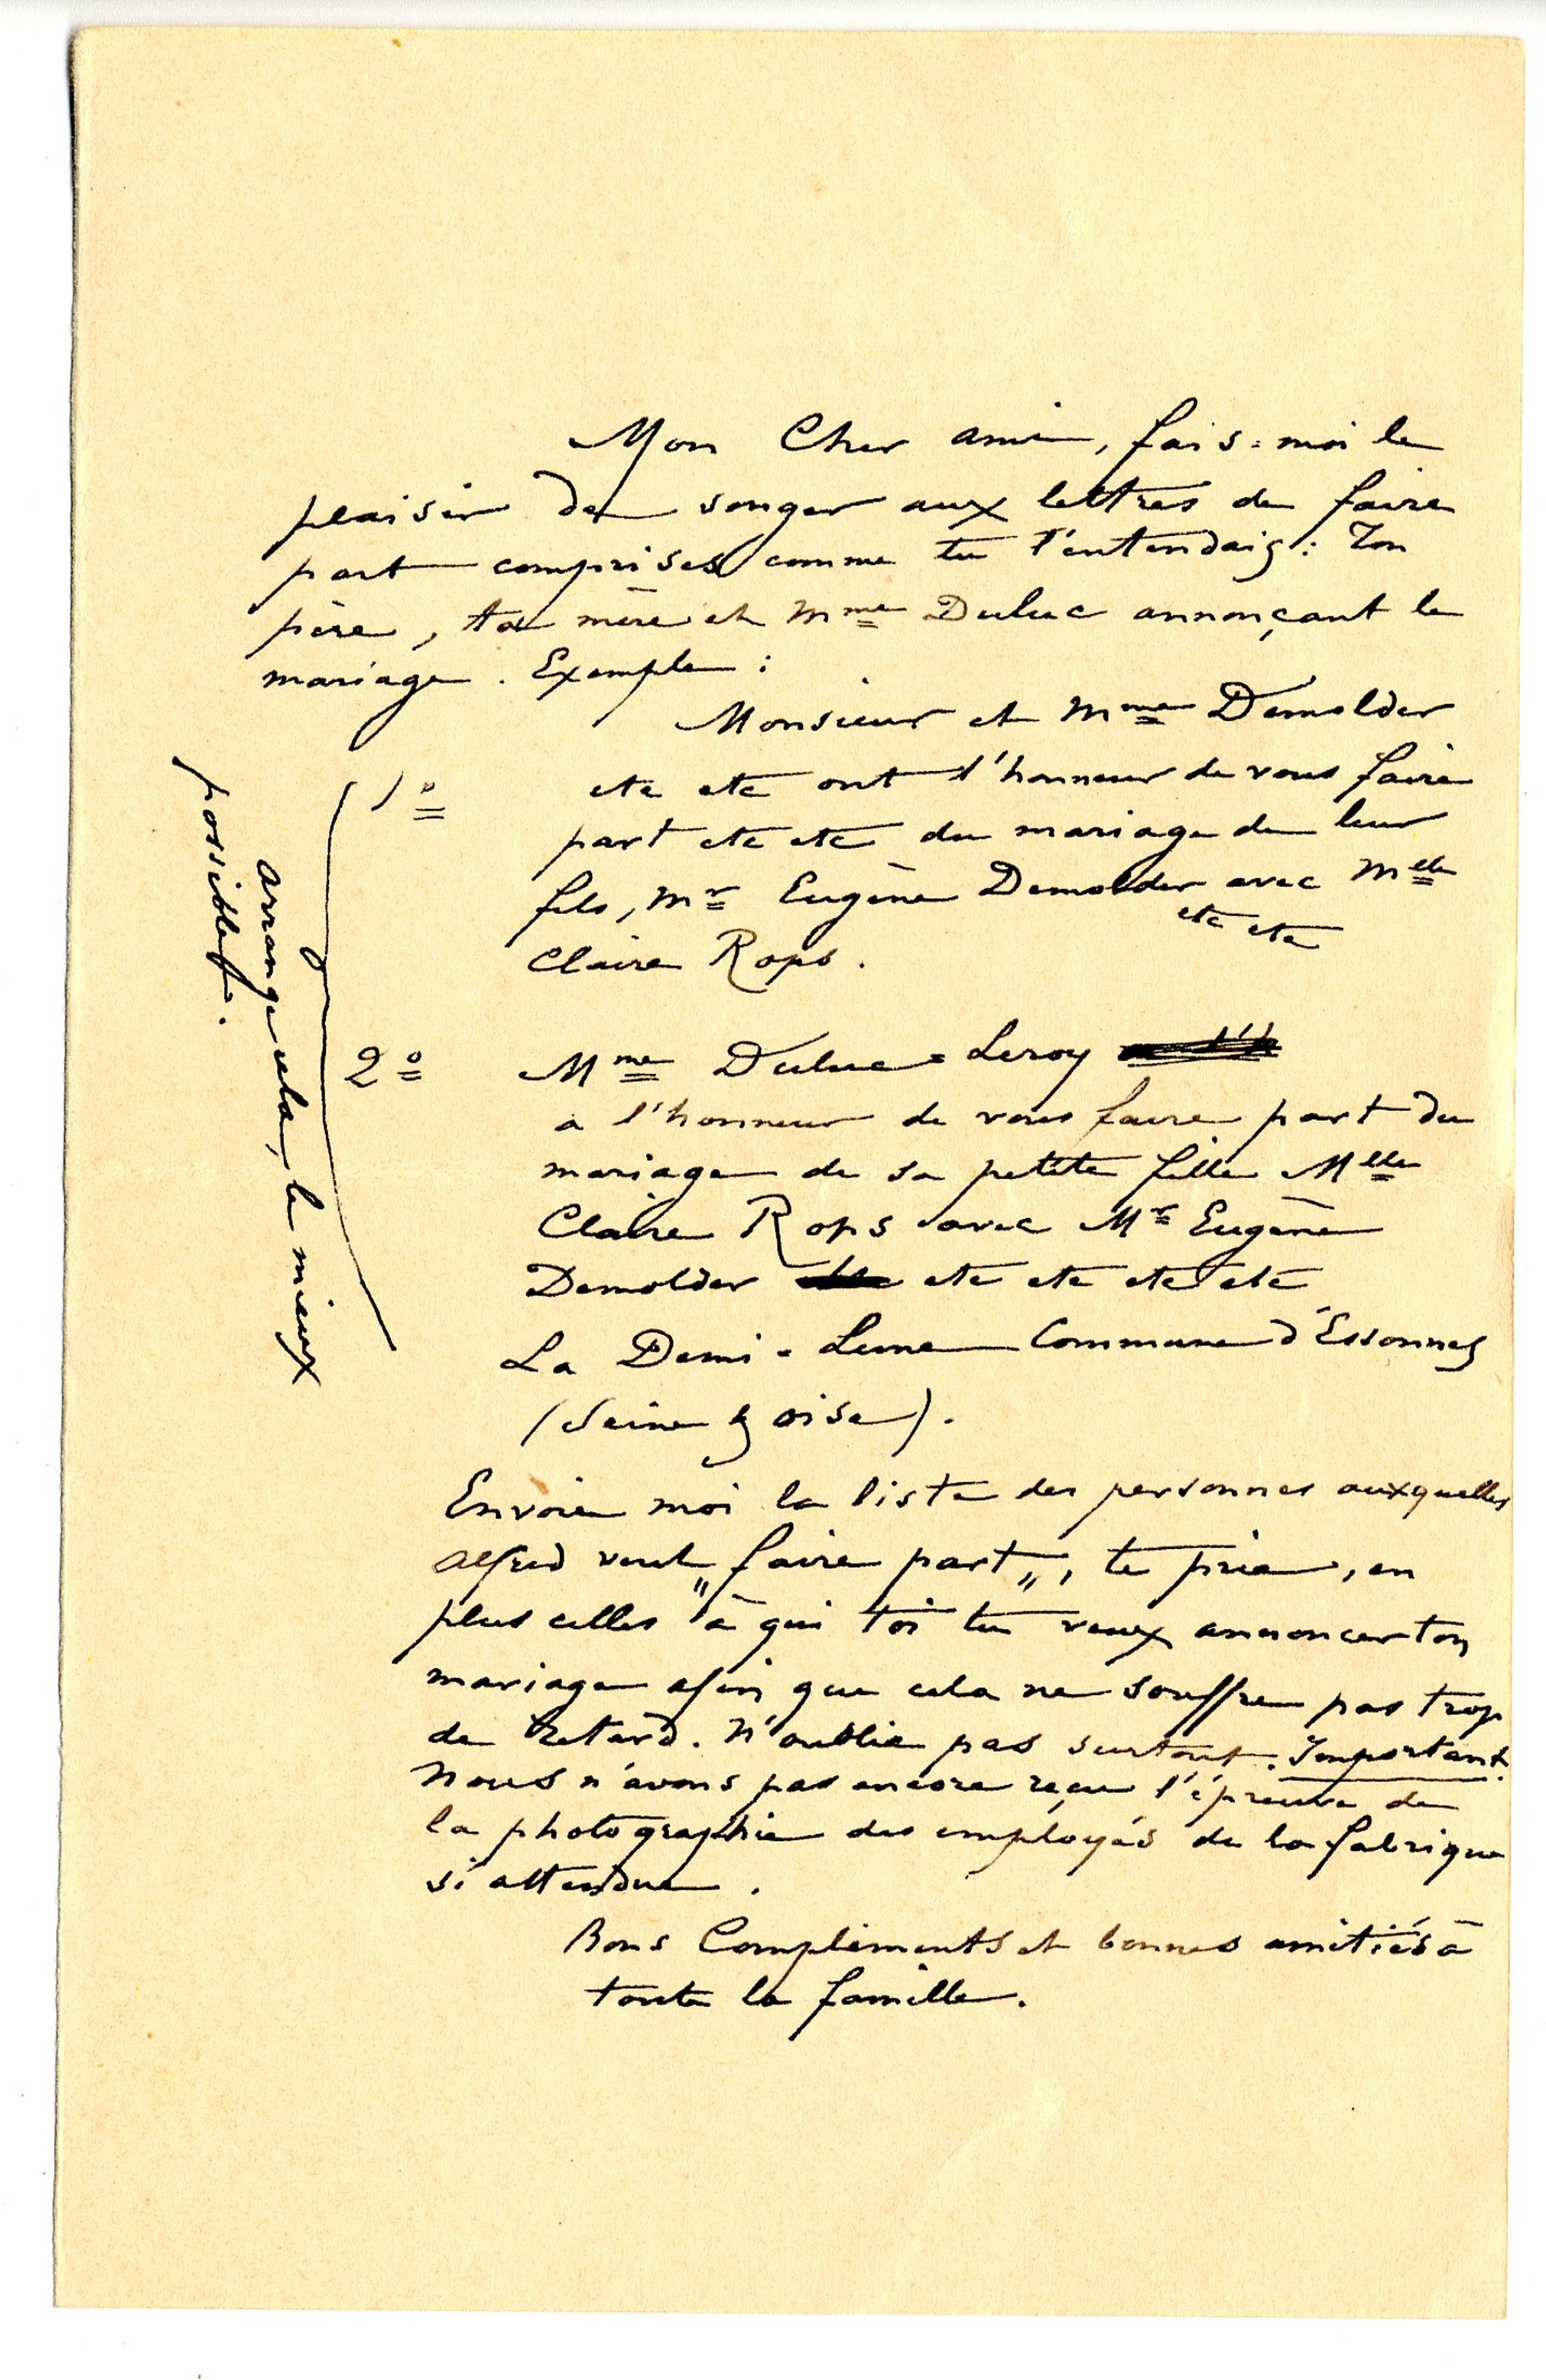 Mon Cher ami, fais-moi le
plaisir de songer aux lettres de faire
part comprises comme tu l'entendais : Ton
père, ta mère et Mme Duluc annonçant le
mariage. Exemple :
Monsieur et Mme Demolder
1o etc etc ont l'honneur de vous faire
part etc etc du mariage de leur
fils, Mr Eugène Demolder avec Melle
etc etc
Claire Rops.
2o Mme Duluc-Leroy
a l'honneur de vous faire part du
mariage de sa petite fille Melle
Claire Rops avec Mr Eugène
Demolder etc etc etc etc
La Demi-Lune Commune d'Essonnes
(Seine & oise).
arrange cela, le mieux
possible.
Envoie moi la liste des personnes auxquelles
Alfred veut „faire part„, te prie, en
plus celles à qui toi tu veux annoncer ton
mariage afin que cela ne souffre pas trop
de retard. N'oublie pas surtout. Important.
Nous n'avons pas encore reçu l'épreuve de
la photographie des employés de la fabrique
si attendue.
Bons Compliments et bonnes amitiés à
toute la famille.